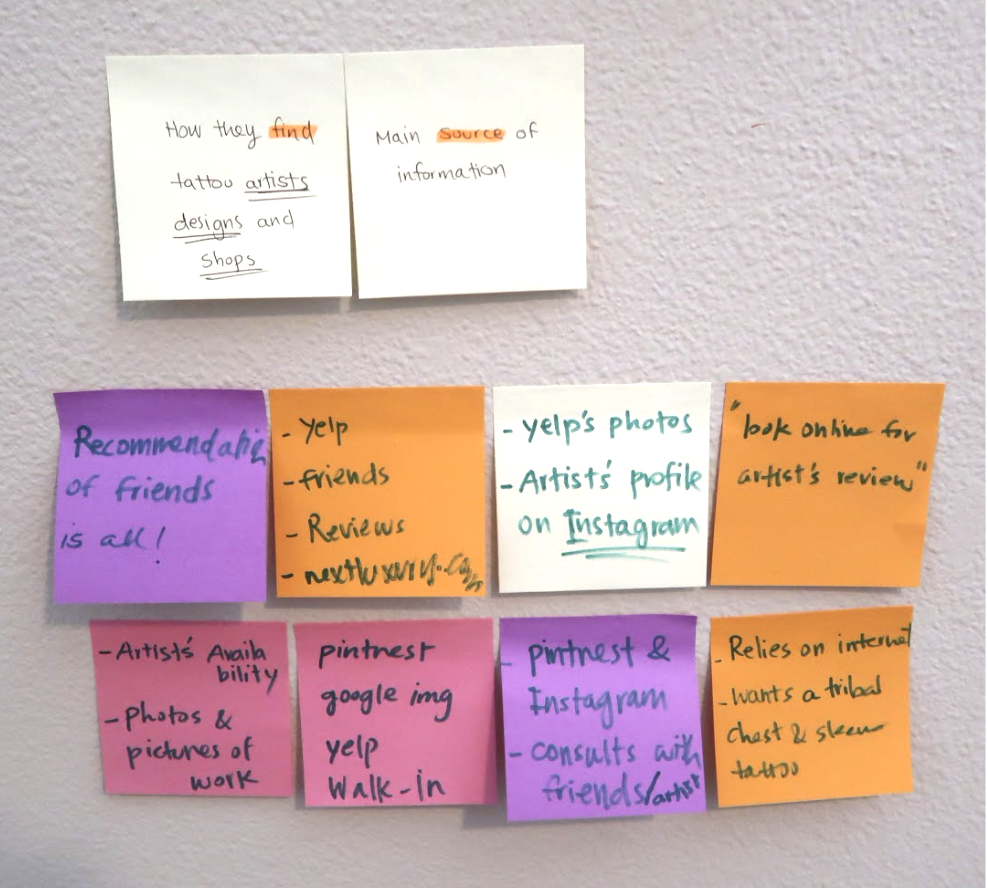 How they find
tattou artists
designs and
shops
Main source of
information
Recommendation
of friends
is all!
- Yelp
- friends
- Reviews
- nextluxury.com
- yelp's photos
- Artist's profile
on Instagram
"look online for
artist's review"
- Artist's Availa
bility
- Photos &
pictures of
work
pintnest
google img
yelp
Walk-In
- pintnest &
Instagram
- consults with
friends/artist
- Relies on internet
- wants a tribal
chest & sleeve
tattoo